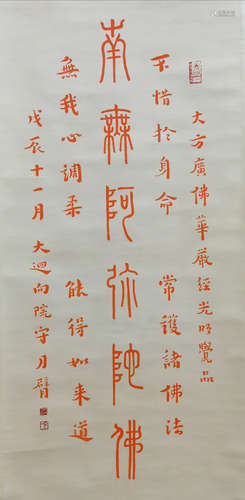 大方廣佛華嚴經光明覺品
不惜於身命 常護諸佛法
南無阿彌陀佛
無我心調柔 能得如來道
戊辰十一月大迴向院守月臂